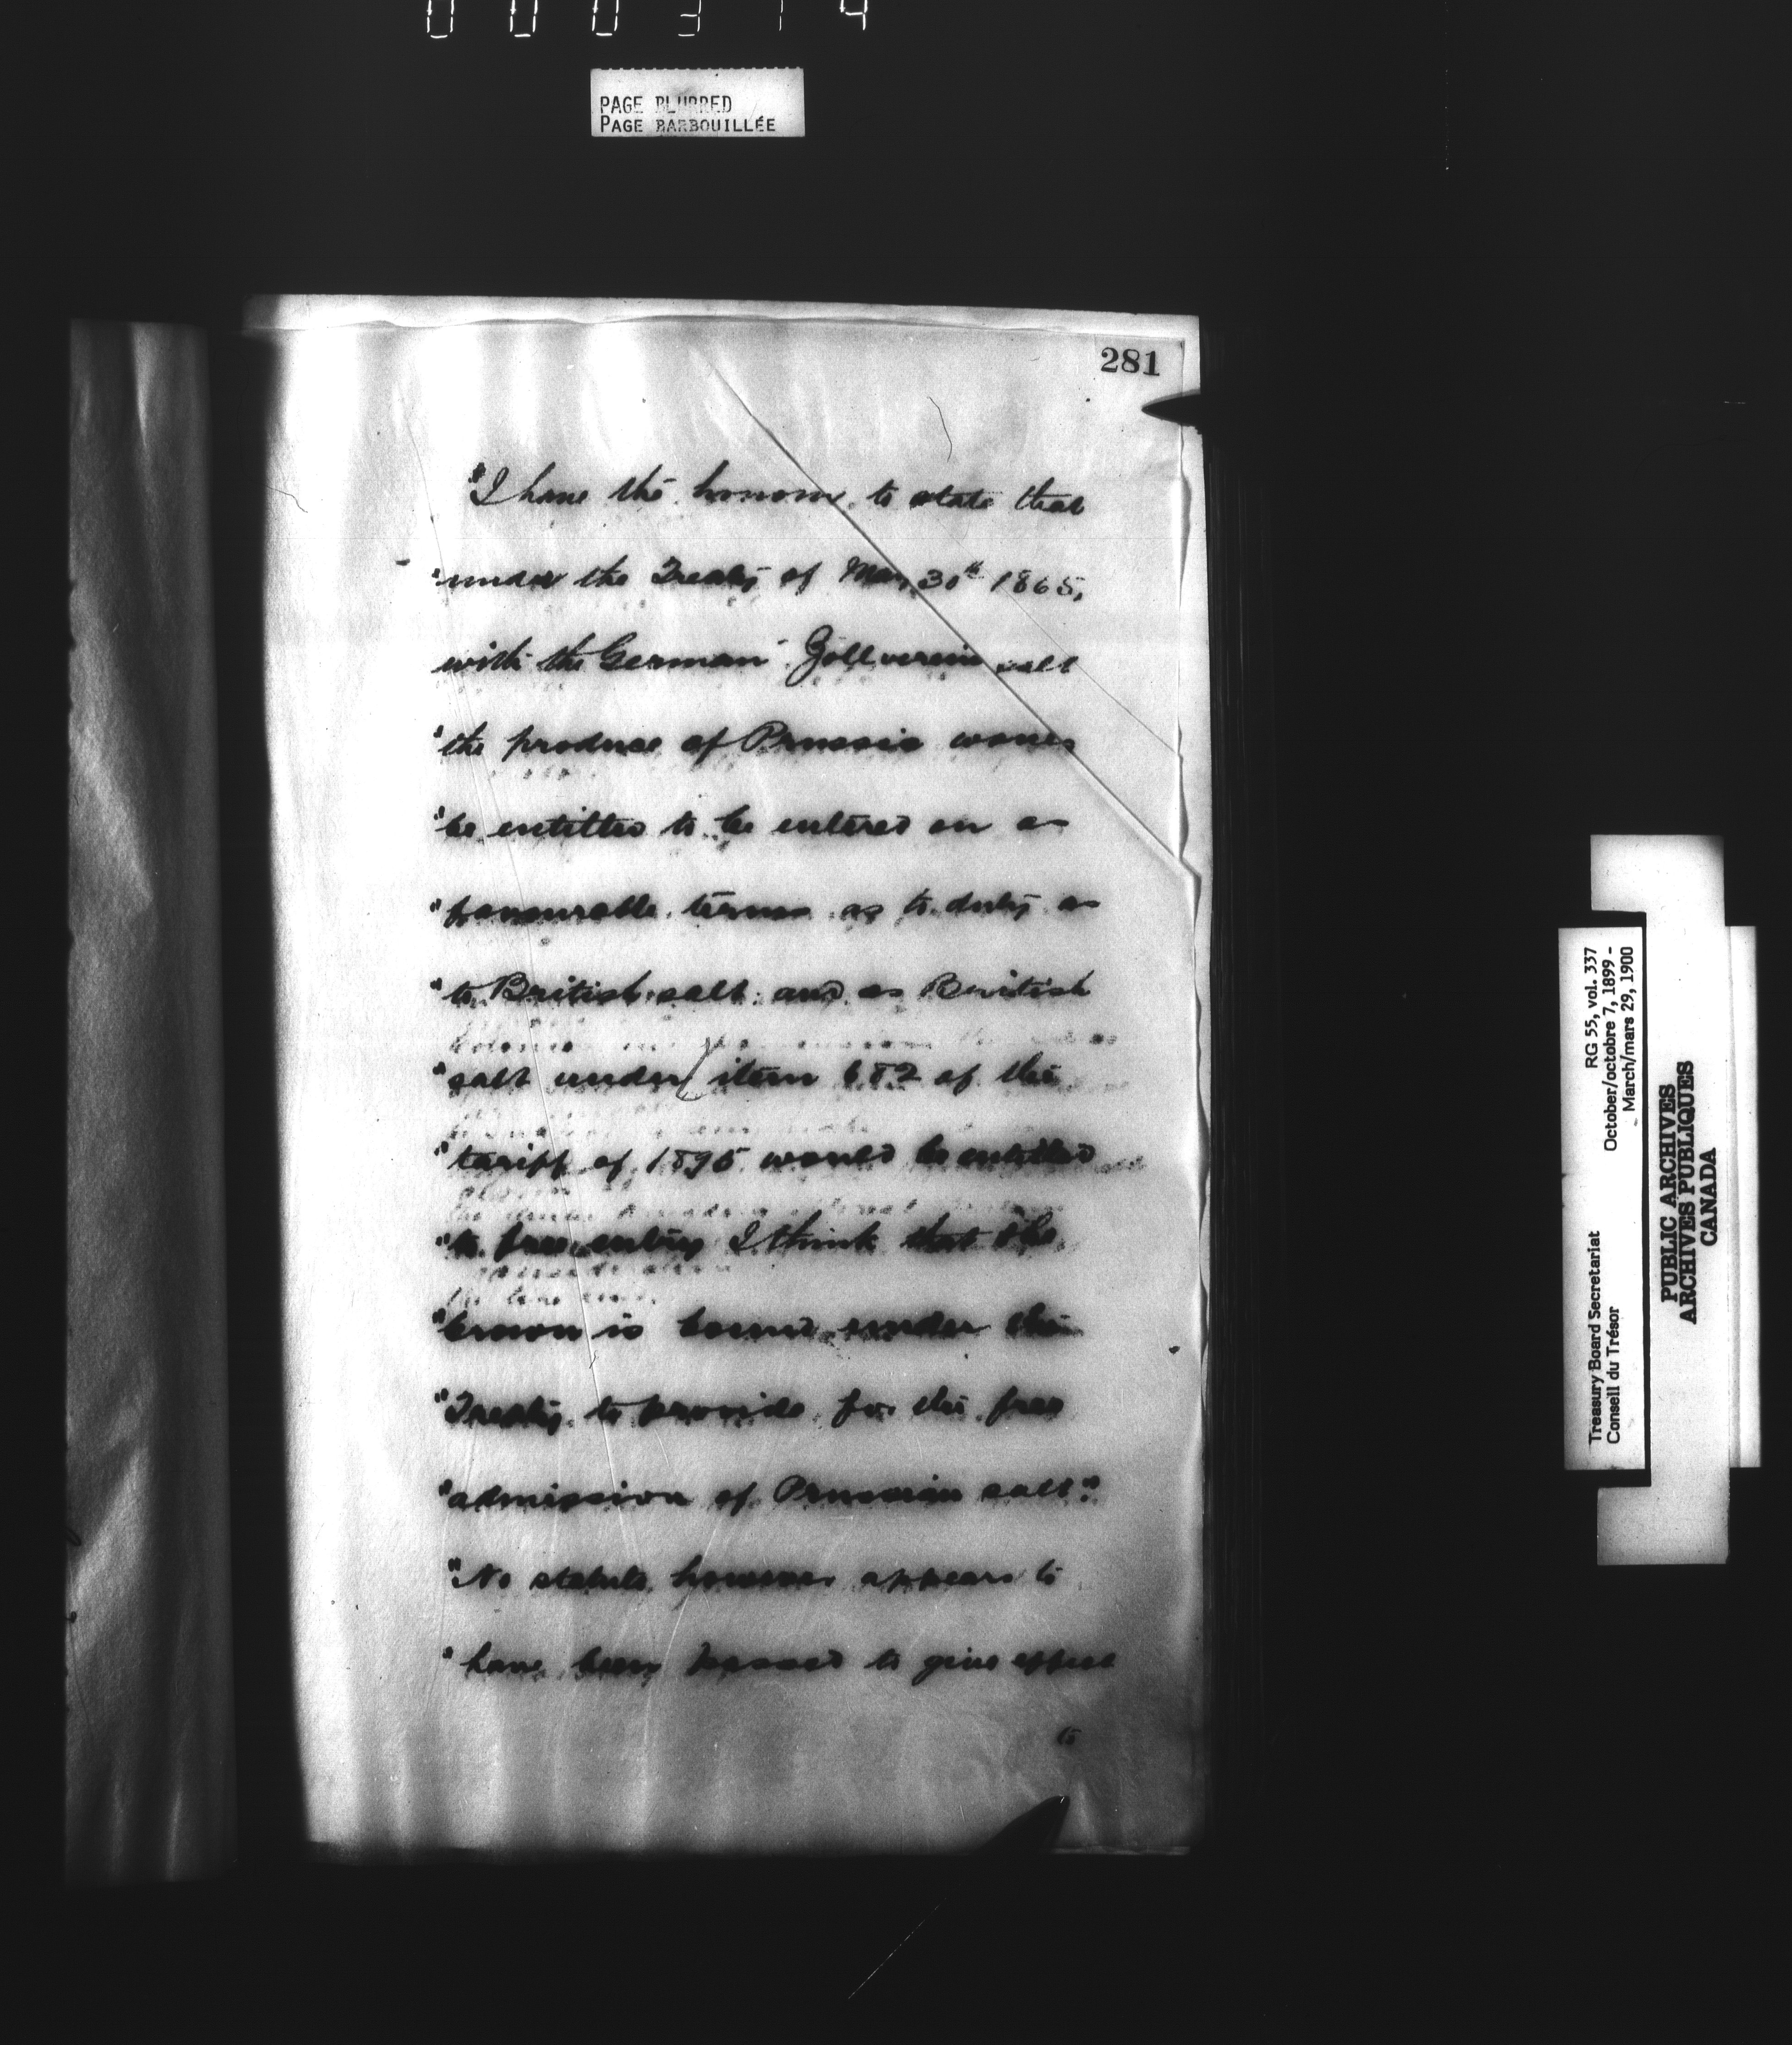 000314
PAGE BLURRED
PAGE BARBOUILLÉE
281
"I have the honour to state that
"under the Treaty of May 30th 1865,
with the German Zollverein salt
"the produce of Prussia would
"be entitled to be entered on as
"favourable terms as to duty as
"to British salt and as British
"salt under item 682 of the
"tariff of 1895 would be entitled
"to free entry I think that the
"Crown is bound under the
"Treaty to provide for the free
"admission of Prussian salt".
"No statute however appears to
"have been passed to give effect
to
Treasury Board Secretariat RG 55, vol. 337
Conseil du Trésor October/octobre 7, 1899 -
March/mars 29, 1900
PUBLIC ARCHIVES
ARCHIVES PUBLIQUES
CANADA